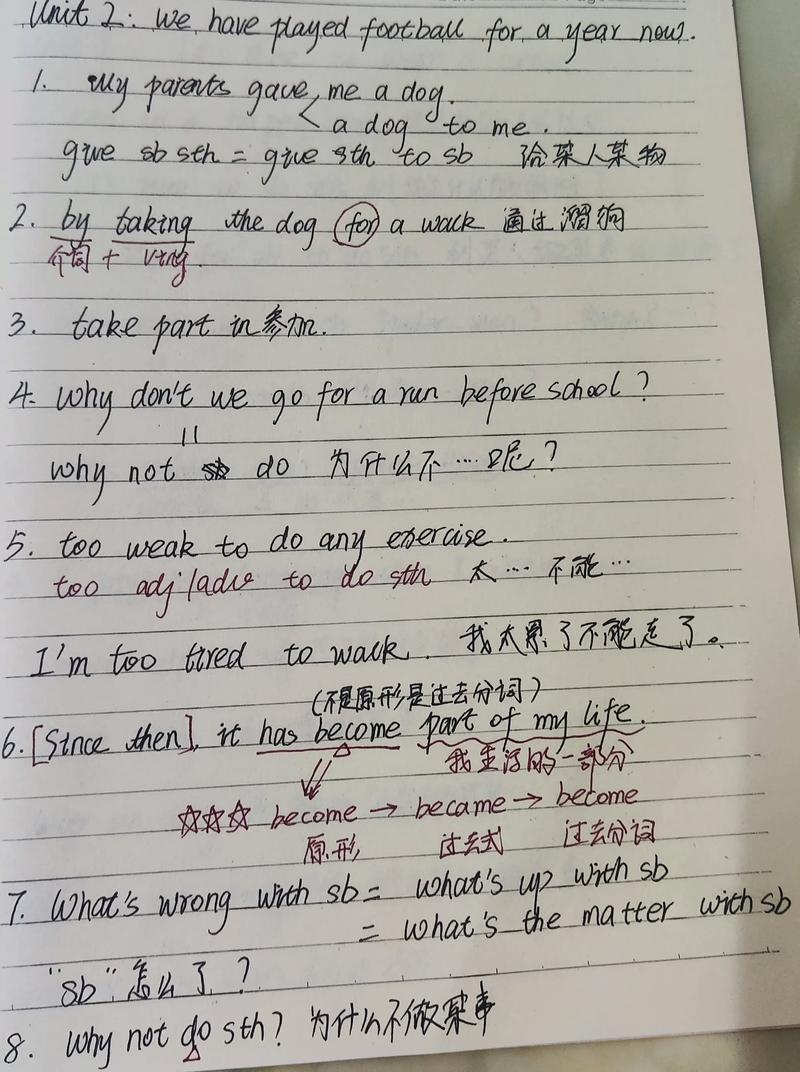 Unit 2: We have played football for a year now.
1. My parents gave me a dog.
a dog to me.
give sb sth = give sth to sb 给某人某物
2. by taking the dog for a wack 通过溜狗
介词 + Ving.
3. take part in 参加.
4. Why don't we go for a run before school?
||
why not do 为什么不…呢?
5. too weak to do any exercise.
too adj/adv to do sth 太… 不能…
I'm too tired to wack. 我太累了不能走了。
(不是原形是过去分词)
6. [Since then], it has become part of my life.
我生活的一部分
☆☆☆ become → became → become
原形 过去式 过去分词
7. What's wrong with sb = what's up with sb
= what's the matter with sb
"sb" 怎么了?
8. Why not do sth? 为什么不做某事